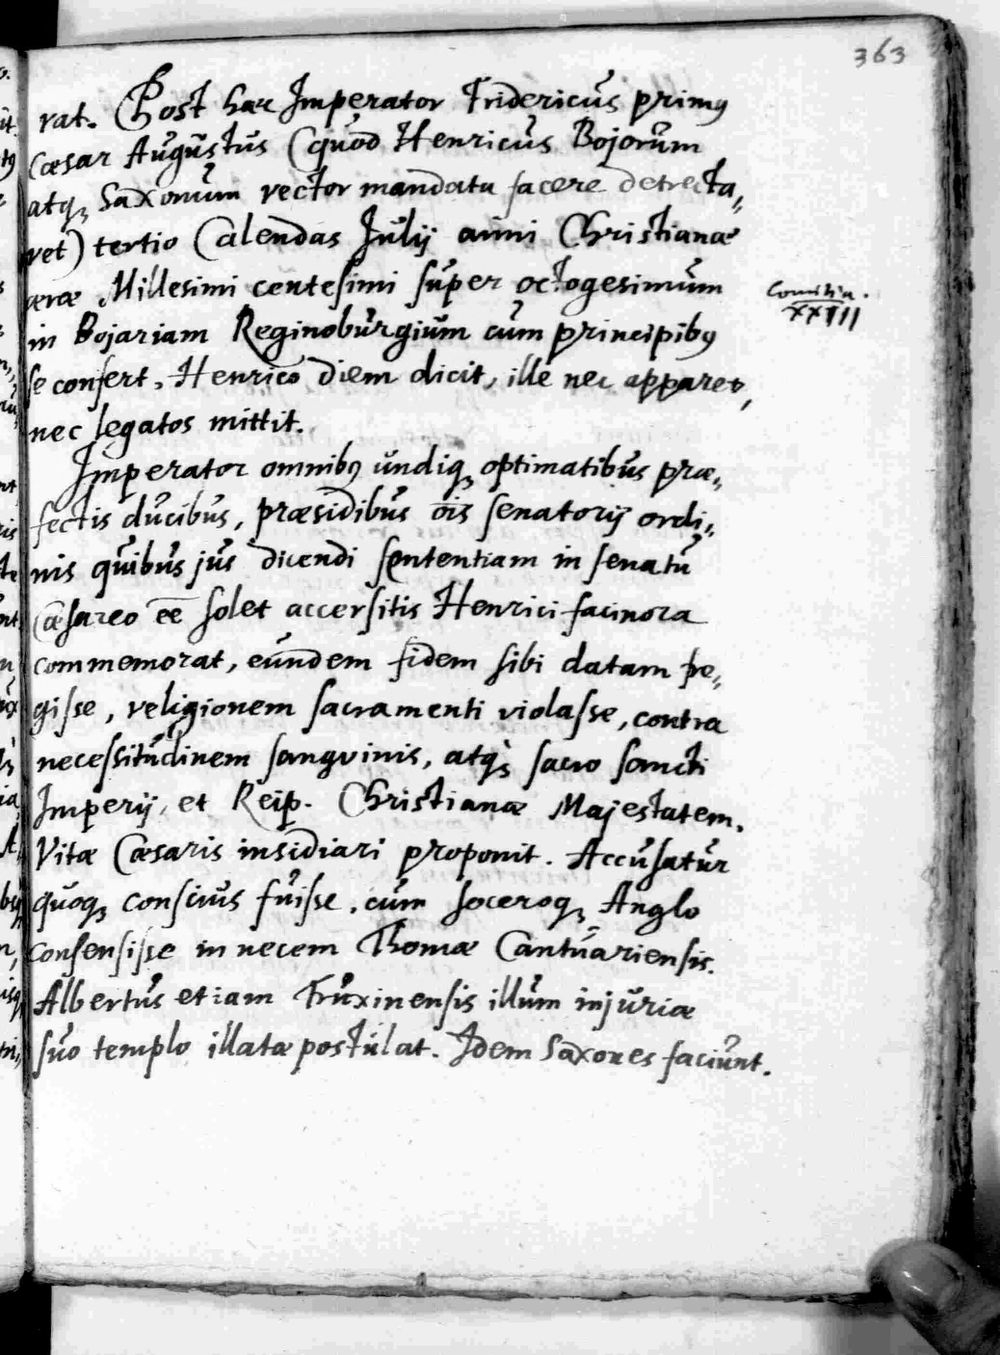 363
rat. Post haec Imperator Fridericus primus
Caesar Augustus (quod Henricus Bojorum
atq; Saxonum rector mandata facere detrecta„
ret) tertio Calendas Julij anni Christianae
aerae Millesimi centesimi super octogesimum
in Bojariam Reginoburgium cum principibus
se confert, Henrico diem dicit, ille nec apparet,
nec legatos mittit.
Comitia.
XXIII
Imperator omnibus undiq; optimatibus prae„
fectis ducibus, praesidibus oīs senatorij ordi„
nis quibus jus dicendi sententiam in senatu
Caesareo ēē solet accersitis Henrici facinora
commemorat, eundem fidem sibi datam pe„
gisse, religionem sacramenti violasse, contra
necessitudinem sanguinis, atq; sacro sancti
Imperij, et Reip. Christianae Majestatem.
Vitae Caesaris insidiari proponit. Accusatur
quoq; conscius fuisse, cum soceroq; Anglo
consensisse in necem Thomae Cantuariensis.
Albertus etiam Fruxinensis illum injuriae
suo templo illatae postulat. Idem Saxones faciunt.